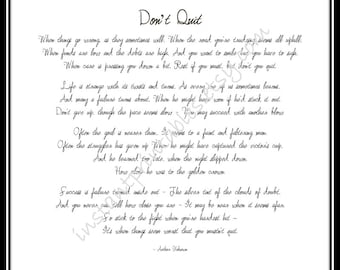 Don't Quit
When things go wrong, as they sometimes will, When the road you're trudging seems all uphill,
When funds are low and the debts are high, And you want to smile but you have to sigh,
When care is pressing you down a bit, Rest if you must, but don't you quit.
Life is strange with its twists and turns, As every one of us sometimes learns,
And many a failure turns about, When he might have won if he'd stuck it out.
Don't give up, though the pace seems slow - You may succeed with another blow.
Often the goal is nearer than, It seems to a faint and faltering man.
Often the struggler has given up, When he might have captured the victor's cup,
And he learned too late, when the night slipped down,
How close he was to the golden crown.
Success is failure turned inside out - The silver tint of the clouds of doubt,
And you never can tell how close you are - It may be near when it seems afar.
So stick to the fight when you're hardest hit -
It's when things seem worst that you mustn't quit.
- Author Unknown
instantprintables.etsy.com